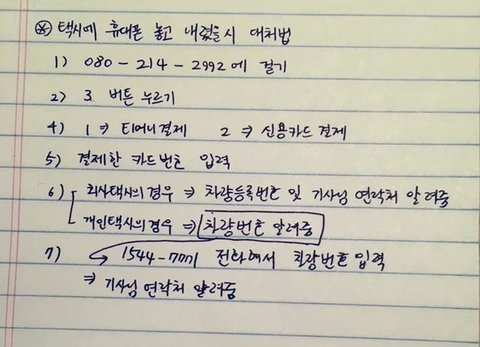 ※ 택시에 휴대폰 놓고 내렸을시 대처법
1) 080-214-2992에 걸기
2) 3 버튼 누르기
4) 1 ⇒ 티머니결제 2 ⇒ 신용카드 결제
5) 결제한 카드번호 입력
6) 회사택시의 경우 ⇒ 차량등록번호 및 기사님 연락처 알려줌
개인택시의 경우 ⇒ 차량번호 알려줌
7) 1544-7771 전화해서 차량번호 입력
⇒ 기사님 연락처 알려줌